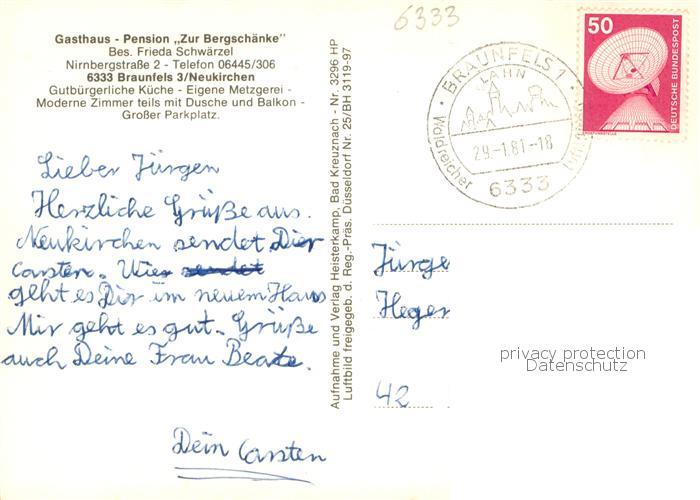 Gasthaus - Pension „Zur Bergschänke"
Bes. Frieda Schwärzel
Nirnbergstraße 2 - Telefon 06445/306
6333 Braunfels 3/Neukirchen
Gutbürgerliche Küche - Eigene Metzgerei -
Moderne Zimmer teils mit Dusche und Balkon -
Großer Parkplatz.
Lieber Jürgen
Herzliche Grüße aus.
Neukirchen sendet Dier
Carsten. Wie
geht es Dir im neuem Haus
Mir geht es gut. Grüße
auch Deine Frau Beate.
Dein Carsten
Aufnahme und Verlag Heisterkamp, Bad Kreuznach - Nr. 3296 HP
Luftbild freigegeb. d. Reg.-Präs. Düsseldorf Nr. 25/BH 3119-97
6333
BRAUNFELS 1
LAHN
29.-1.81.-18
6333
Waldreicher
50
DEUTSCHE BUNDESPOST
Jürge
Heger
42
privacy protection
Datenschutz